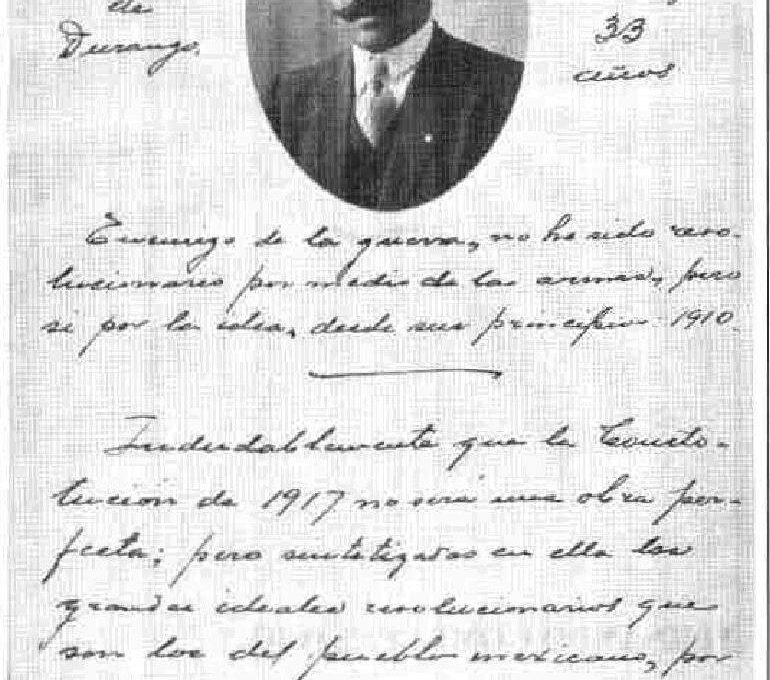 de
Durango.
33
años
Enemigo de la guerra, no he sido revo-
lucionario por medio de las armas, pero
si por la idea, desde sus principios 1910.
Indudablemente que la Consti-
tución de 1917 no será una obra per-
fecta; pero sintetizados en ella los
grandes ideales revolucionarios que
son los del pueblo mexicano, por